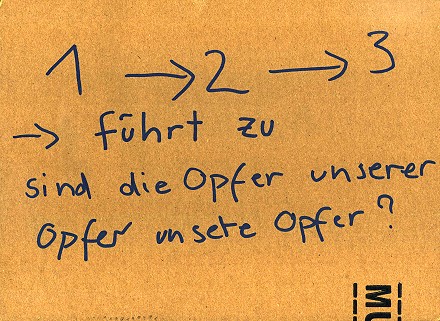 1 → 2 → 3
→ führt zu
sind die Opfer unserer
Opfer unsere Opfer?
MU